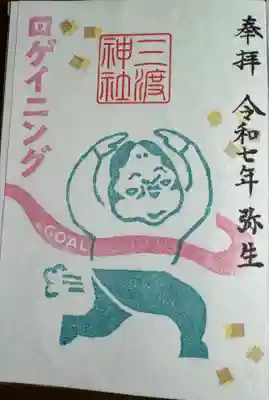 奉拝 令和七年 弥生
三渡
神社
ロゲイニング
GOAL